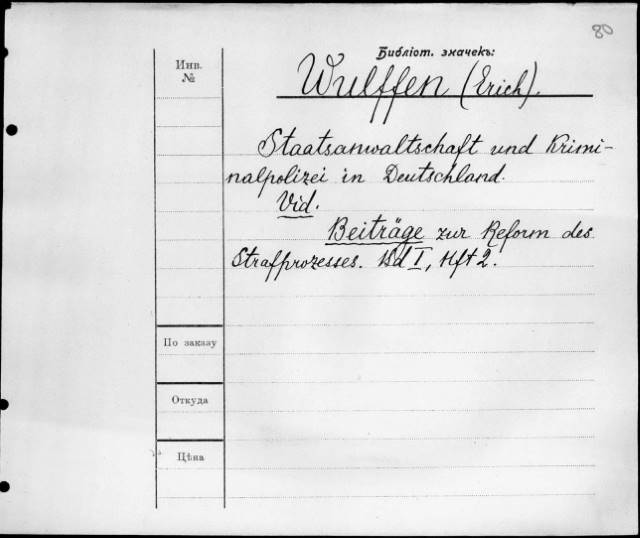 80
Библіот. значекъ:
Инв.
№
Wulffen (Erich).
Staatsanwaltschaft und Krimi-
nalpolizei in Deutschland.
Vid.
Beiträge zur Reform des
Strafprozesses. Bd I, Hft 2.
По заказу
Откуда
Цѣна